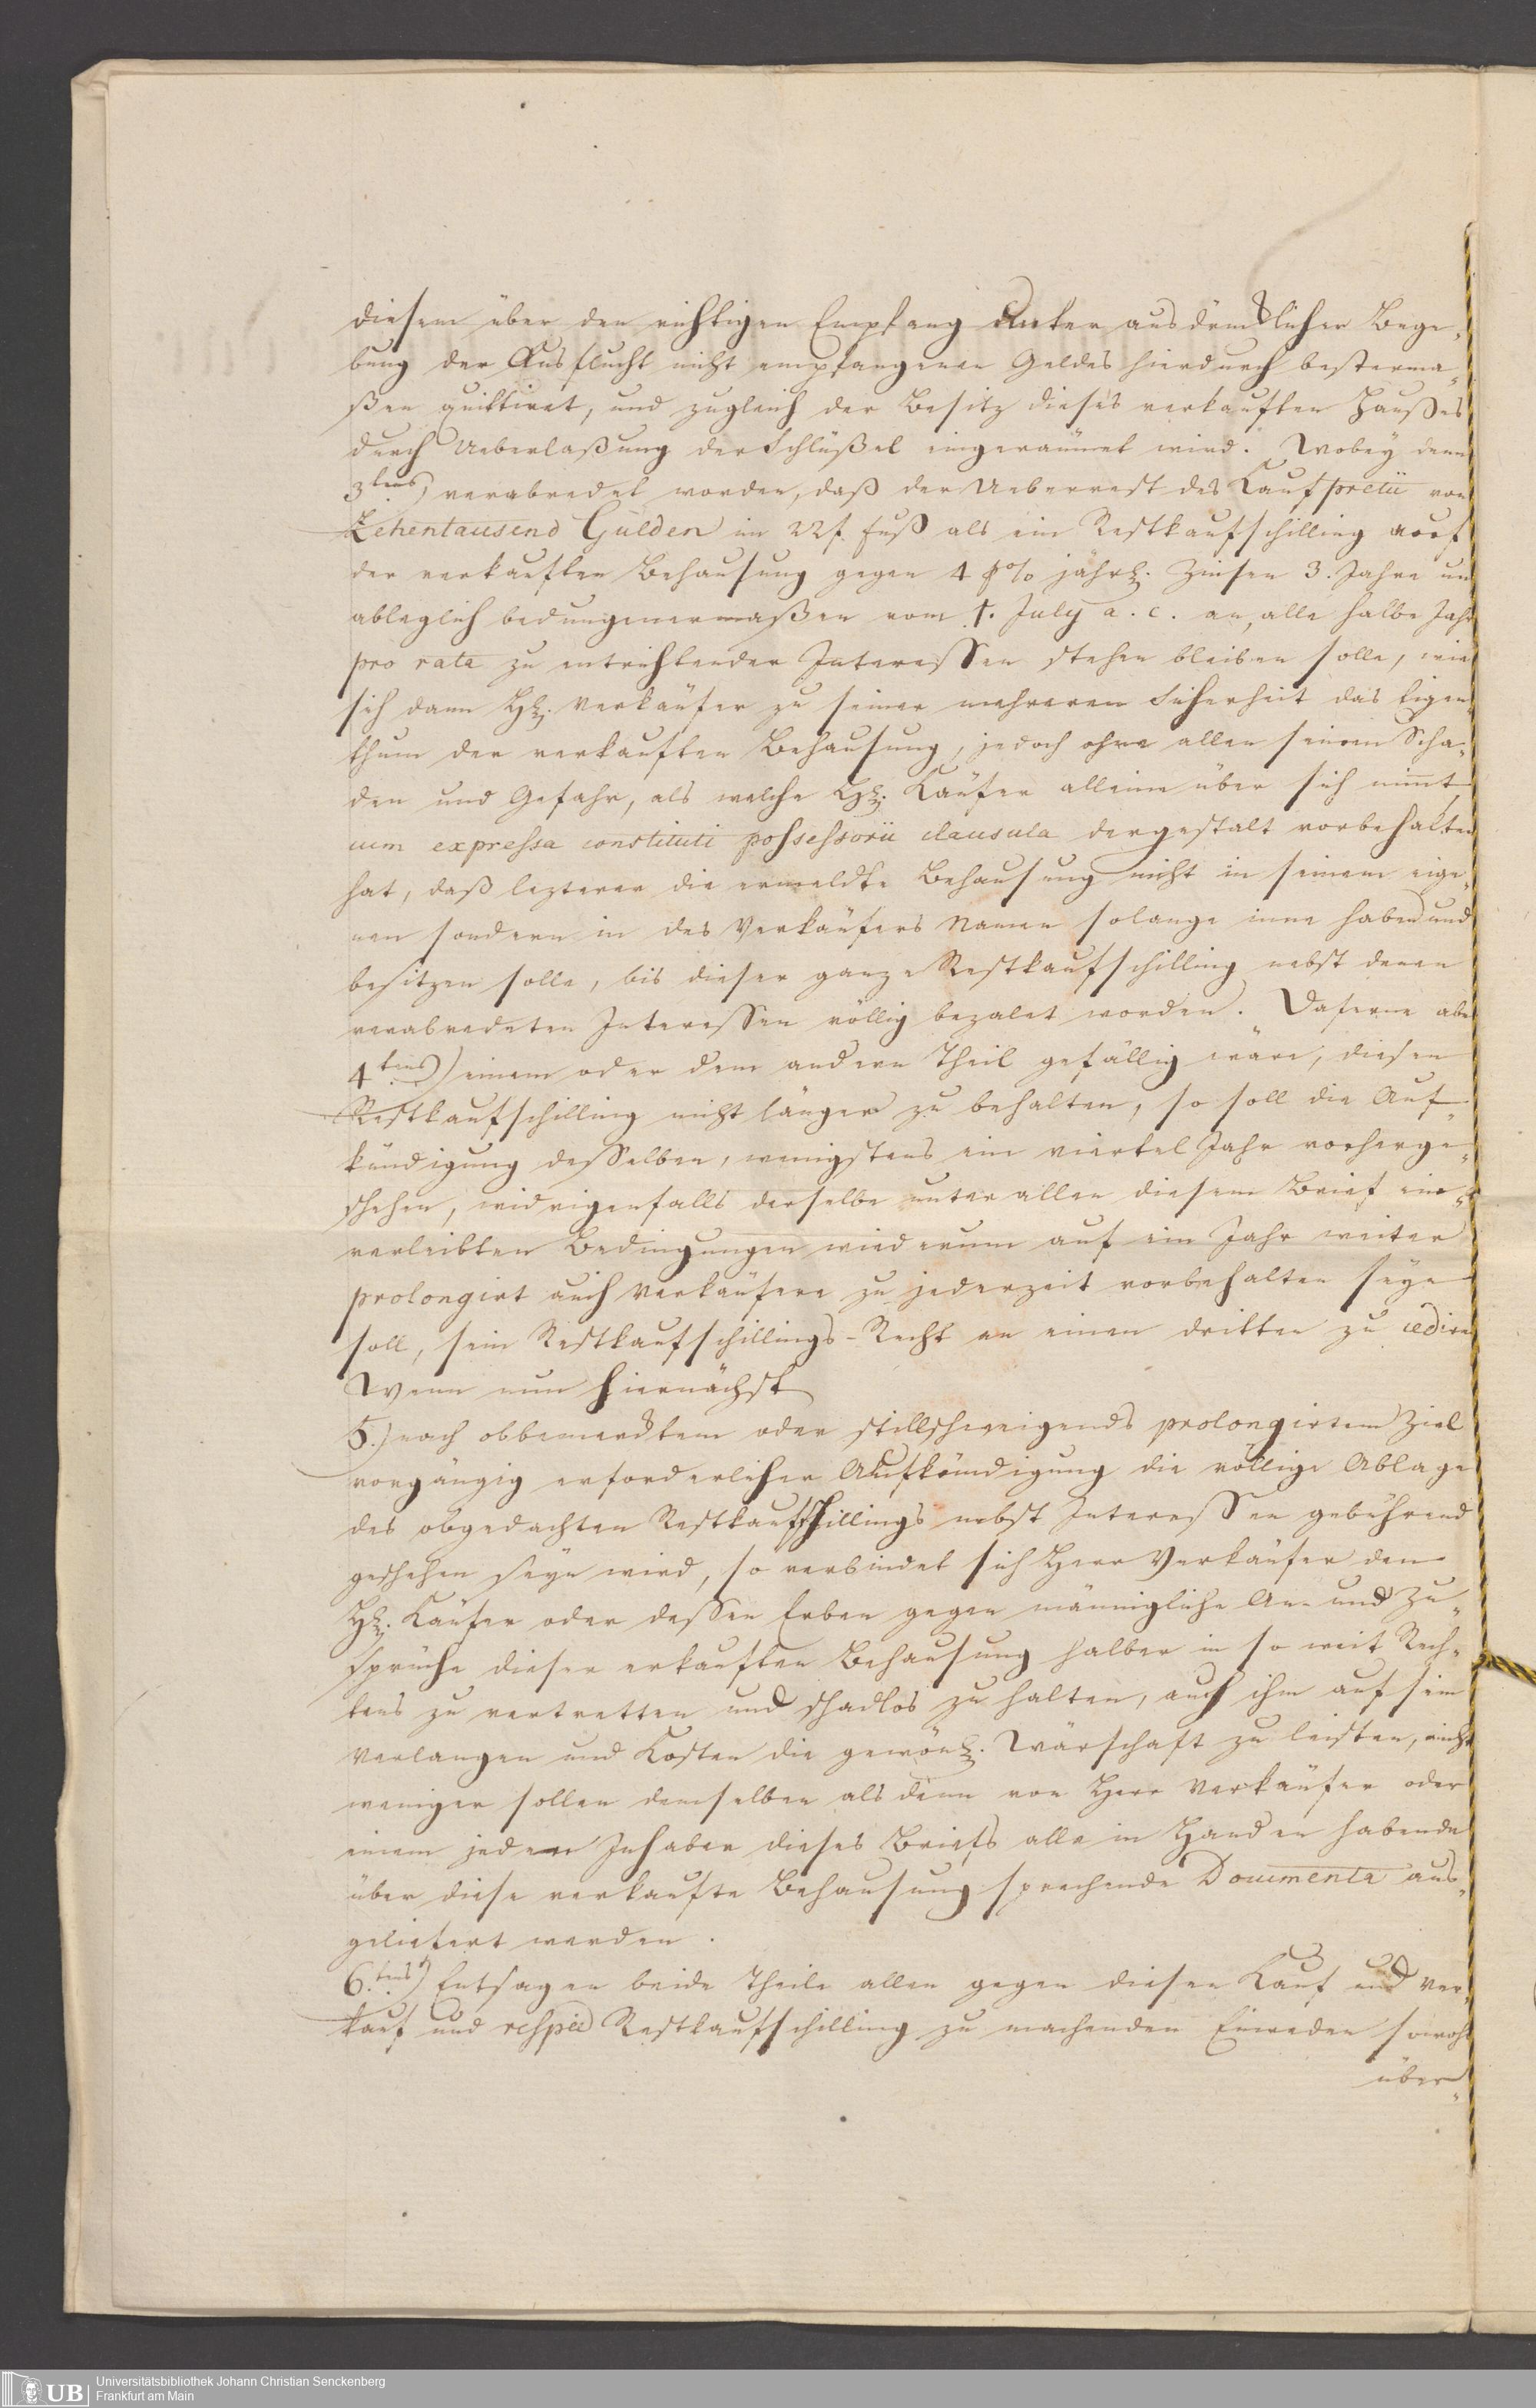 diesem über den richtigen Empfang unter ausdrücklicher Bege„
bung der Ausflucht nicht empfangenen Geldes hierdurch besterma„
ßen quittiret, und zugleich der Besitz dieses verkauften Haußes
durch Ueberlaßung der Schlüßel eingeräumet wird. Wobey denn
3tens) verabredet worden, daß der Ueberrest des Kaufpretii von
Zehentausend Gulden im 22f. Fuß als ein Restkaufschilling auf
der verkauften Behausung gegen 4 p% jährl. Zinsen 3. Jahre un
ableglich bedungenermaßen vom 1. July a. c. an, alle halbe Jahr
pro rata zu entrichtender Interessen stehen bleiben solle, wie
sich dann Hr. Verkäufer zu seiner mehreren Sicherheit das Eigen„
thum der verkauften Behausung, jedoch ohne allen seinen Scha„
den und Gefahr, als welche Hr. Käufer alleine über sich nimt
cum expressa constituti possessorii clausula dergestalt vorbehalten
hat, daß lezterer die ermeldte Behausung nicht in seinem eige„
nen sondern in des Verkäufers Namen solange inne haben und
besitzen solle, bis dieser ganze Restkaufschilling nebst denen
verabredeten Interessen völlig bezalet worden. Daferne aber
4tens) einem oder dem andern Theil gefällig wäre, diesen
Restkaufschilling nicht länger zu behalten, so soll die Auf„
kündigung desselben, wenigstens ein viertel Jahr vorherge„
schehen, widrigenfalls derselbe unter allen diesem Brief ein„
verleibten Bedingungen wiederum auf ein Jahr weiter
prolongirt auch Verkäufern zu jederzeit vorbehalten seyn
soll, sein Restkaufschillings-Recht an einen dritten zu cediren
Wenn nun hiernächst
5.) nach obbemerdtem oder stillschweigends prolongirtem Ziel
vorgängig erforderlicher Aufkündigung die völlige Ablage
des obgedachten Restkaufschillings nebst Interessen gebührend
geschehen seyn wird, so verbindet sich Herr Verkäufer den
Hr. Käufer oder dessen Erben gegen männigliche An- und Zu„
sprüche dieser erkauften Behausung halber in so weit Rech„
tens zu vertretten und schadlos zu halten, auch ihm auf sein
Verlangen und Kosten die gewönl. Wärschaft zu leisten, nicht
weniger sollen demselben als denn von Herr Verkäufer oder
einem jeden Inhaber dieses Briefs alle in Handen habende
über diese verkaufte Behausung sprechende Documenta aus„
geliefert werden.
6.tens) Entsagen beide Theile allen gegen diesen Kauf und Ver„
kauf und respéé Restkaufschilling zu machenden Einreden sowohl
über„
Universitätsbibliothek Johann Christian Senckenberg
Frankfurt am Main
UB